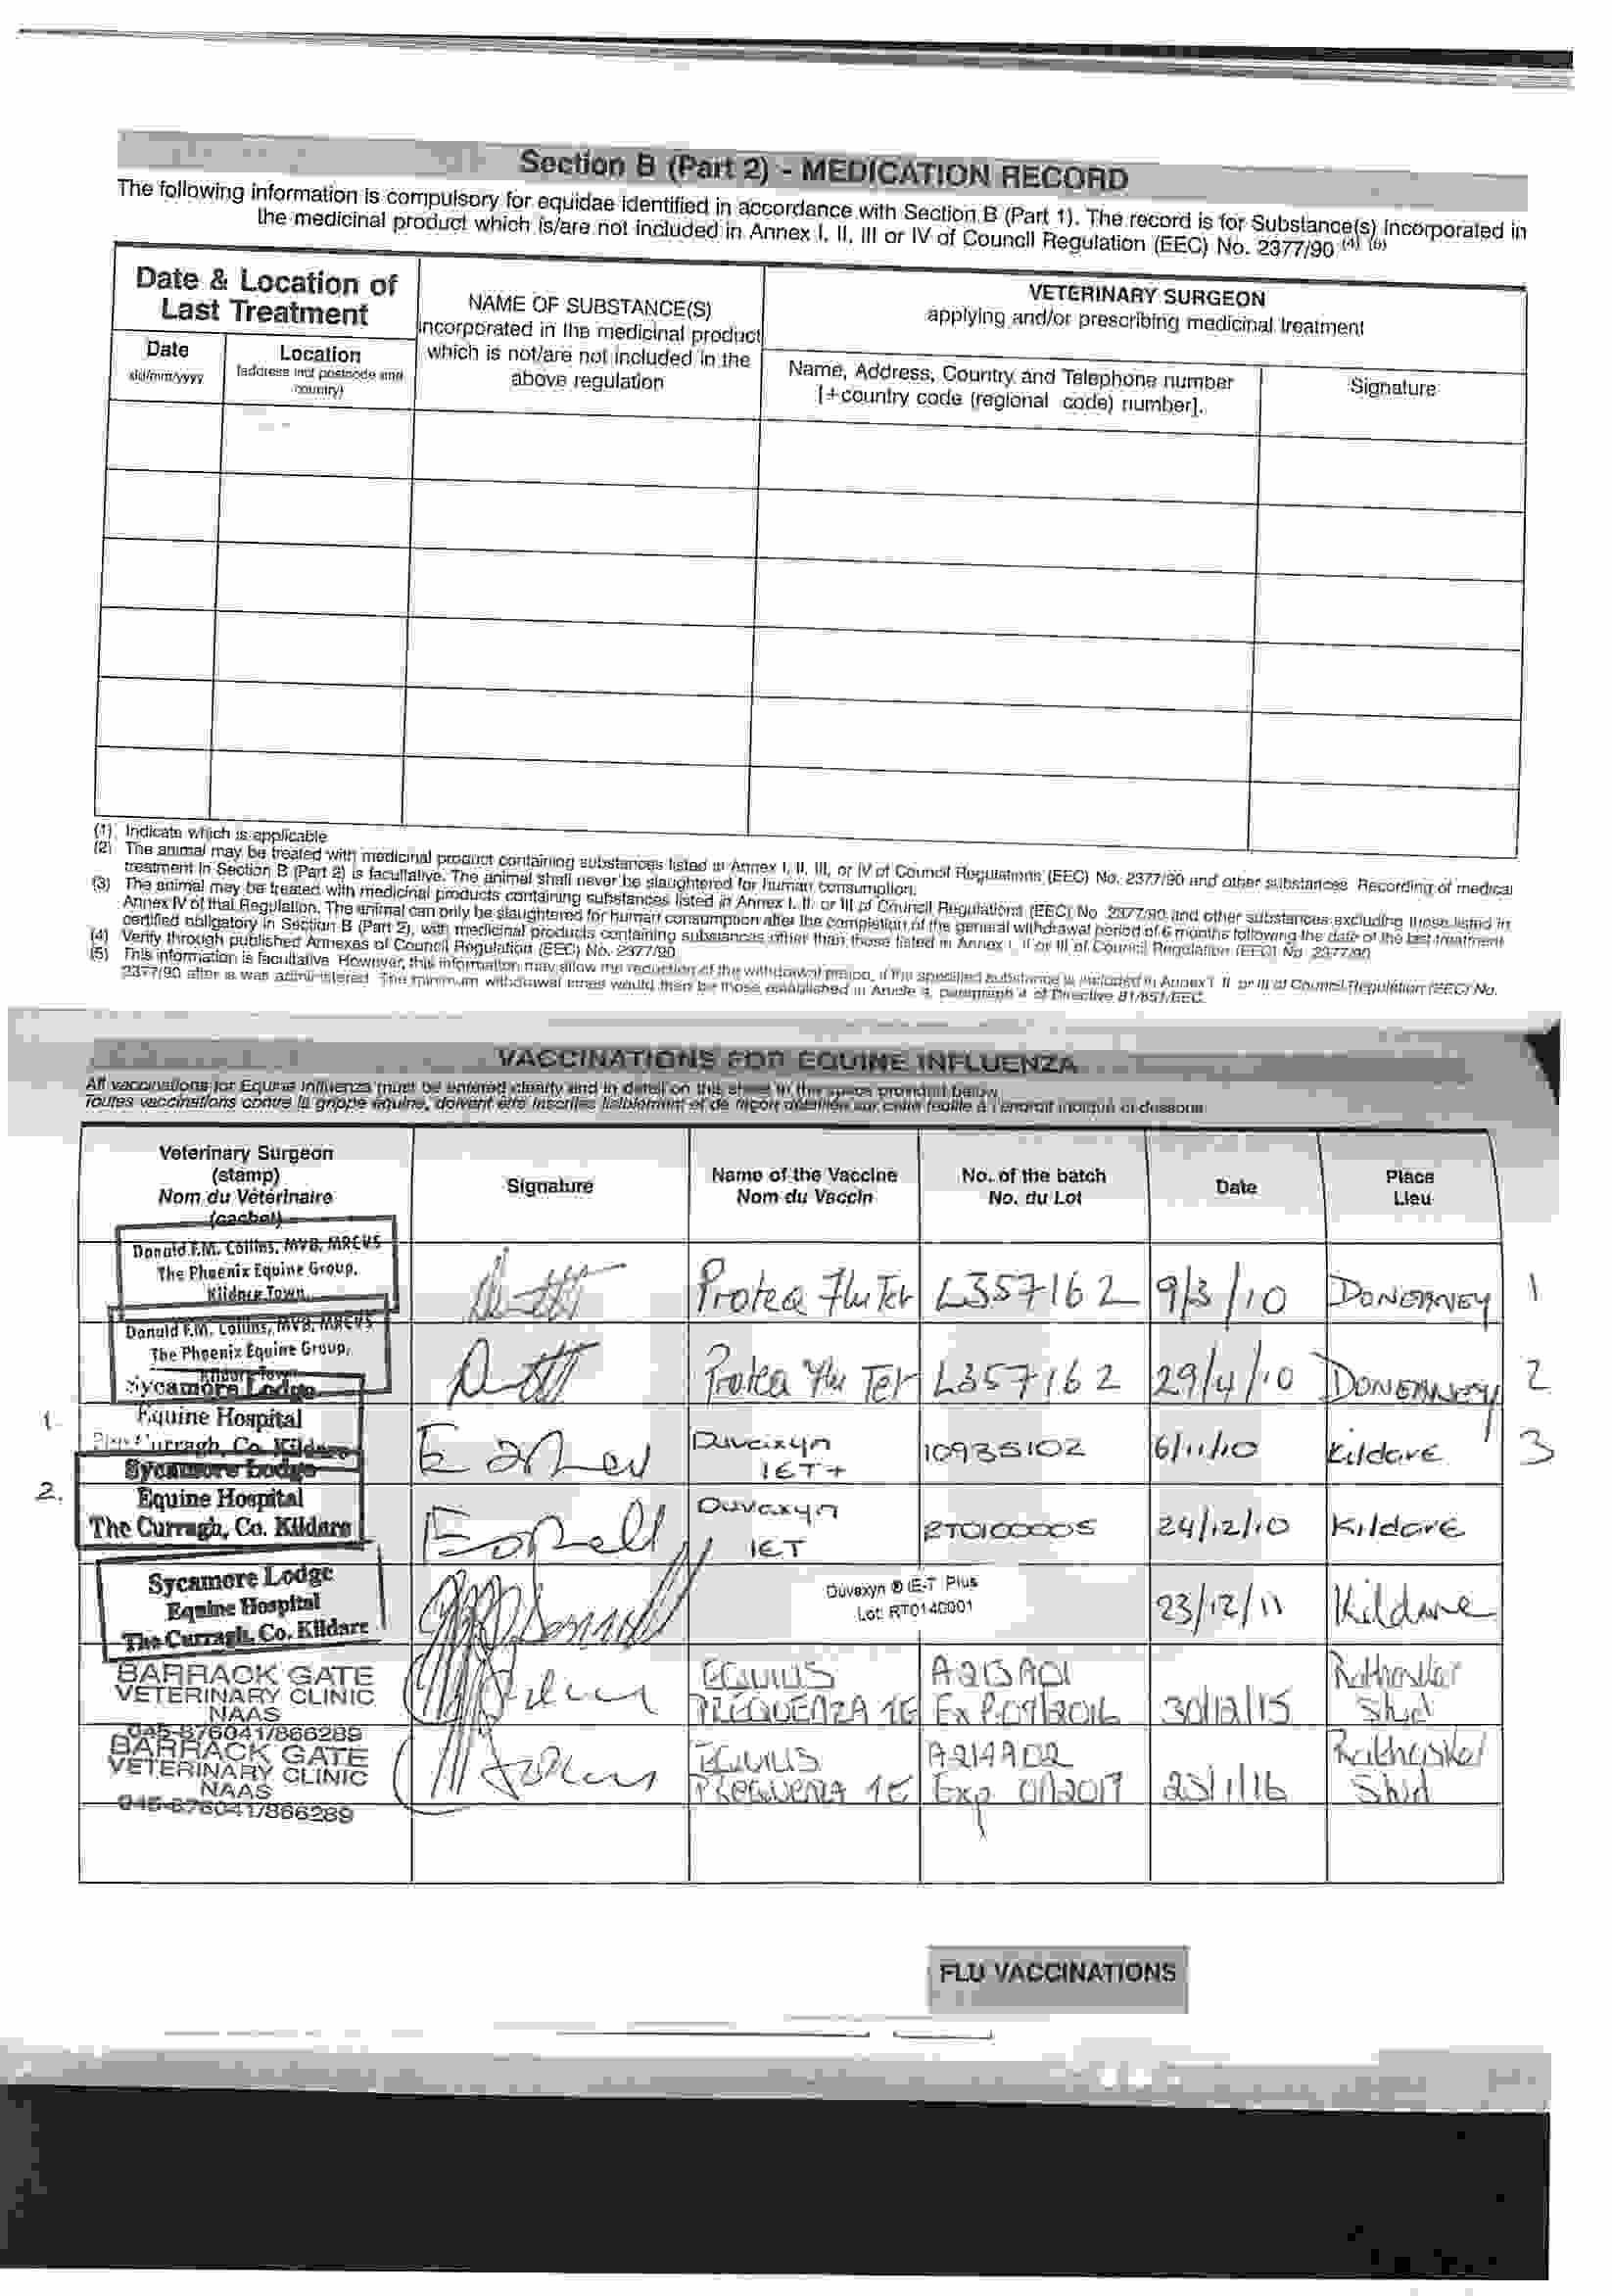 Section B (Part 2) - MEDICATION RECORD
The following information is compulsory for equidae identified in accordance with Section B (Part 1). The record is for Substance(s) incorporated in
the medicinal product which is/are not included in Annex I, II, III or IV of Council Regulation (EEC) No. 2377/90 (4) (5)
Date & Location of
Last Treatment
Date
dd/mm/yyyy
Location
(address incl postcode and
country)
NAME OF SUBSTANCE(S)
incorporated in the medicinal product
which is not/are not included in the
above regulation
VETERINARY SURGEON
applying and/or prescribing medicinal treatment
Name, Address, Country and Telephone number
[+country code (regional code) number].
Signature
(1) Indicate which is applicable
(2) The animal may be treated with medicinal product containing substances listed in Annex I, II, III, or IV of Council Regulations (EEC) No. 2377/90 and other substances. Recording of medical
treatment in Section B (Part 2) is facultative. The animal shall never be slaughtered for human consumption.
(3) The animal may be treated with medicinal products containing substances listed in Annex I, II, or III of Council Regulations (EEC) No 2377/90 and other substances excluding those listed in
Annex IV of that Regulation. The animal can only be slaughtered for human consumption after the completion of the general withdrawal period of 6 months following the date of the last treatment
certified obligatory in Section B (Part 2), with medicinal products containing substances other than those listed in Annex I, II or III of Council Regulation (EEC) No 2377/90
(4) Verify through published Annexes of Council Regulation (EEC) No. 2377/90
(5) This information is facultative. However, this information may allow the reduction of the withdrawal period, if the specified substance is included in Annex I, II, or III of Council Regulation (EEC) No.
2377/90 after is was administered. The minimum withdrawal times would then be those established in Article 4, paragraph 4 of Directive 81/851/EEC.
VACCINATIONS FOR EQUINE INFLUENZA
All vaccinations for Equine Influenza must be entered clearly and in detail on this sheet in the space provided below
Toutes vaccinations contre la grippe equine, doivent être inscrites lisiblement et de façon détaillée sur cette feuille à l'endroit indiqué ci-dessous
Veterinary Surgeon
(stamp)
Nom du Vétérinaire
(cachet)
Signature
Name of the Vaccine
Nom du Vaccin
No. of the batch
No. du Lot
Date
Place
Lieu
Donald F.M. Collins, MVB, MRCVS
The Phoenix Equine Group,
Kildare Town.
Protea Flu Ter L357162 9/3/10 DONEANEY 1
Donald F.M. Collins, MVB, MRCVS
The Phoenix Equine Group,
Kildare Town
Protea Flu Ter L357162 29/4/10 DONEANEY 2
1. Sycamore Lodge
Equine Hospital
The Curragh, Co. Kildare
Duvaxyn
IET+
10935102 6/11/10 Kildare 3
2. Sycamore Lodge
Equine Hospital
The Curragh, Co. Kildare
Duvaxyn
IET
RT0100005 24/12/10 Kildare
Sycamore Lodge
Equine Hospital
The Curragh, Co. Kildare
Duvaxyn ® IE-T Plus
Lot: RT0140001
23/12/11 Kildare
BARRACK GATE
VETERINARY CLINIC
NAAS
045-876041/866289
EQUILIS
PREQUENZA 1E
A213A01
Exp. 09/2016
30/12/15
Rathasker
Stud
BARRACK GATE
VETERINARY CLINIC
NAAS
045-876041/866289
EQUILIS
PREQUENZA 1E
A214A02
Exp 01/2017
25/1/16
Rathasker
Stud
FLU VACCINATIONS